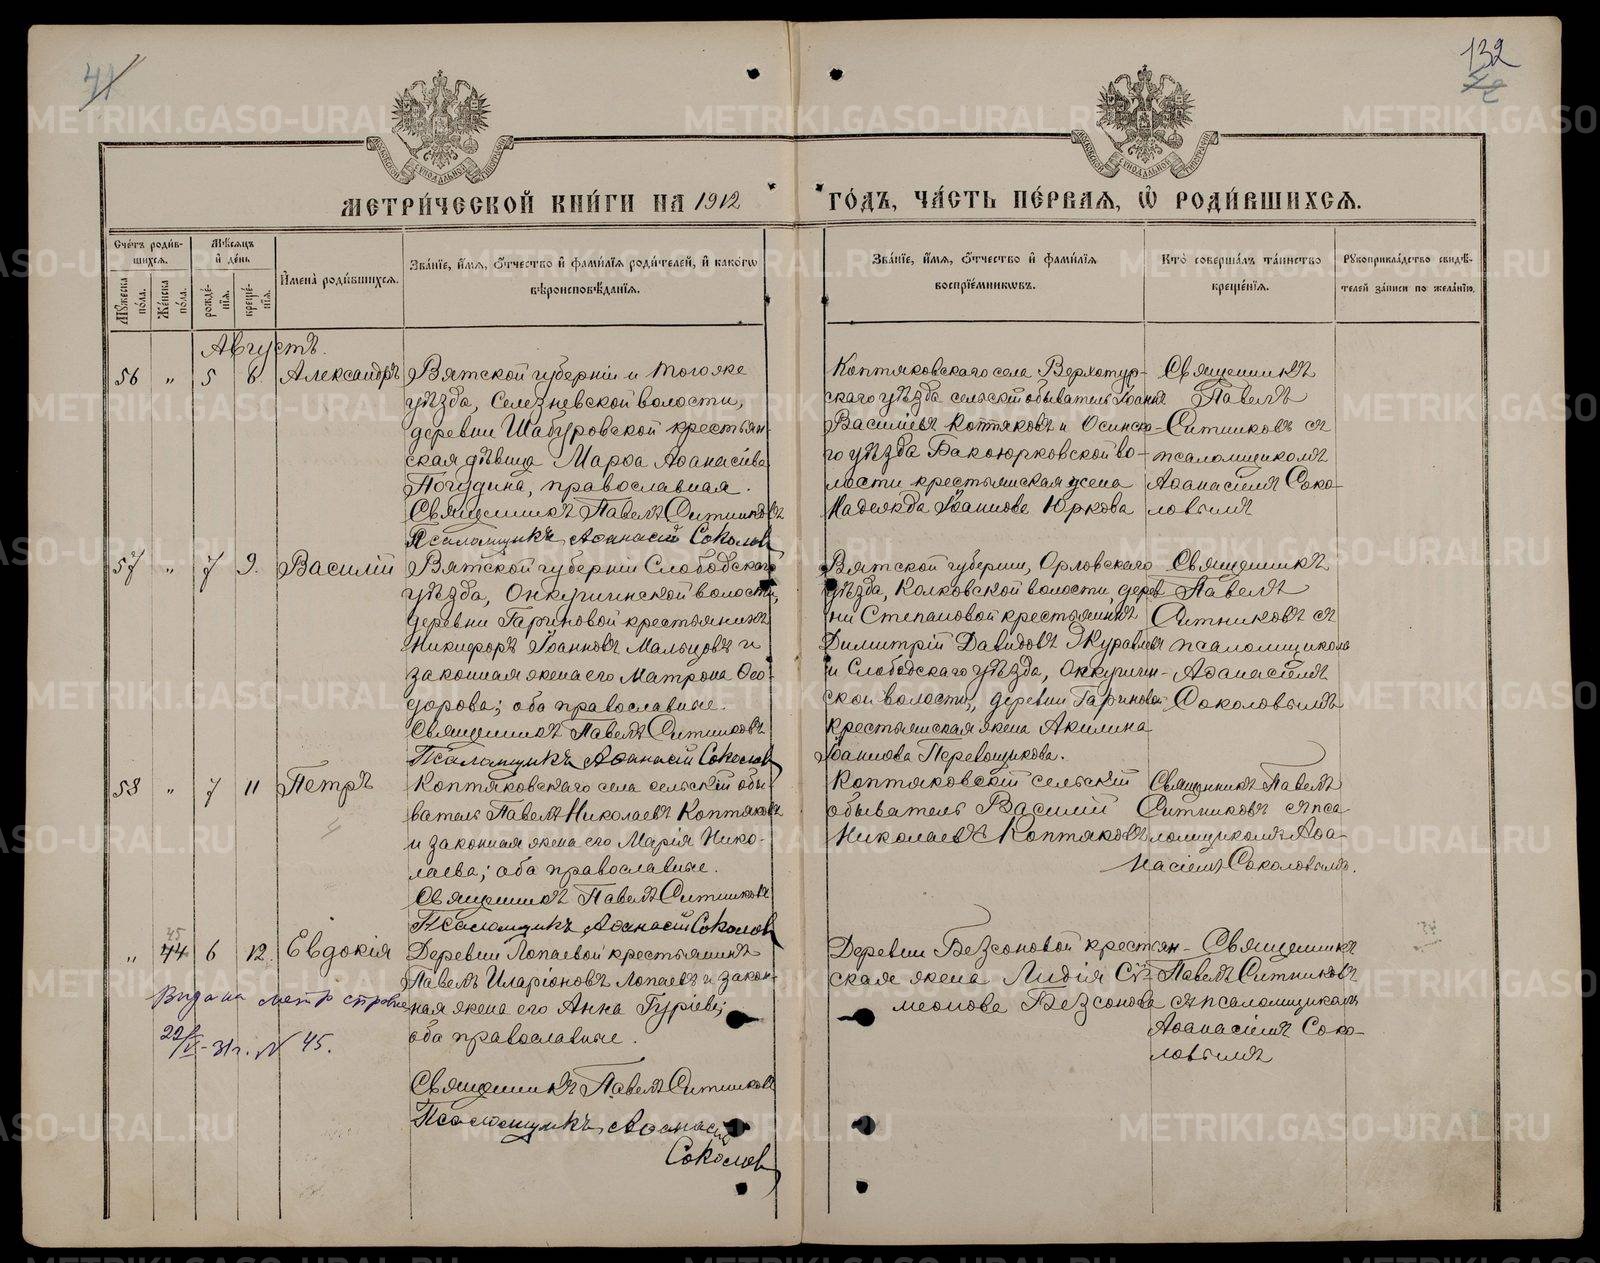 41
132
42
МЕТРИ́ЧЕСКОЙ КНИ́ГИ НА 1912 ГО́ДЪ, ЧА́СТЬ ПЕ́РВАѦ, Ѽ РОДИ́ВШИХСѦ.
Сче́тъ роди́в-
шихся.
Мѣ́сяцъ
и҆ де́нь
Мꙋ́жеска по́ла.
Же́нска по́ла.
рожде́-
нїѧ.
креще́-
нїѧ.
И҆мена̀ роди́вшихся.
Зва́нїе, и҆́мѧ, ѻ҆́тчество и҆ фами́лїѧ роди́телей, и҆ како́гѡ
вѣроисповѣ́данїѧ.
Зва́нїе, и҆́мѧ, ѻ҆́тчество и҆ фами́лїѧ
воспрїе́мникѡвъ.
Кто̀ соверша́лъ та́инство
креще́нїѧ.
Рꙋкоприкла́дство свидѣ́-
телей за́писи по жела́нїю.
Августъ.
56 „ 5 6 Александръ
Вятской губерніи и тогоже
уѣзда, Селезневской волости,
деревни Шабуровской крестьян-
ская дѣвица Марѳа Аѳанасіева
Погудина, православная.
Священникъ Павелъ Ситниковъ
Псаломщикъ Аѳанасій Соколов
Коптяковскаго села Верхотур-
скаго уѣзда сельскій обыватель Іоаннъ
Василіевъ Коптяковъ и Осинска-
го уѣзда Бакоюрковской во-
лости крестьянская жена
Надежда Іоаннова Юркова
Священникъ
Павелъ
Ситниковъ съ
псаломщикомъ
Аѳанасіемъ Соко-
ловымъ
57 „ 7 9. Василій
Вятской губерніи Слободскаго
уѣзда, Онкугинской волости,
деревни Гариновой крестьянинъ
Никифоръ Іоанновъ Мальцовъ и
законная жена его Матрона Ѳео-
дорова; оба православные.
Священникъ Павелъ Ситниковъ
Псаломщикъ Аѳанасій Соколов
Вятской губерніи, Орловскаго
уѣзда, Колковской волости, дерев
ни Степановой крестьянинъ
Димитрій Давидовъ Журавлевъ
и Слободскаго уѣзда, Онкугин-
ской волости, деревни Гариновой
крестьянская жена Акилина
Іоаннова Перевощикова.
Священникъ
Павелъ
Ситниковъ съ
псаломщикомъ
Аѳанасіемъ
Соколовымъ
58 „ 7 11 Петръ
Коптяковскаго села сельскій обы-
ватель Павелъ Николаевъ Коптяковъ
и законная жена его Марія Нико-
лаева; оба православные.
Священникъ Павелъ Ситниковъ
Псаломщикъ Аѳанасій Соколов
Коптяковскій сельскій
обыватель Василій
Николаевъ Коптяковъ
Священникъ Павелъ
Ситниковъ съ пса
ломщикомъ Аѳа-
насіемъ Соколовымъ.
45
„ 44 6 12. Евдокія
Деревни Лопаевой крестьянинъ
Павелъ Иларіоновъ Лопаевъ и закон-
ная жена его Анна Гуріева;
оба православные.
Священникъ Павелъ Ситниковъ
Псаломщикъ Аѳанасій
Соколов
Выдана метр справка
22/V-31г. N 45.
Деревни Безсоновой крестьян-
ская жена Лидія Си-
меонова Безсонова
Священникъ
Павелъ Ситниковъ
съ псаломщикомъ
Аѳанасіемъ Соко-
ловымъ
METRIKI.GASO-URAL.RU